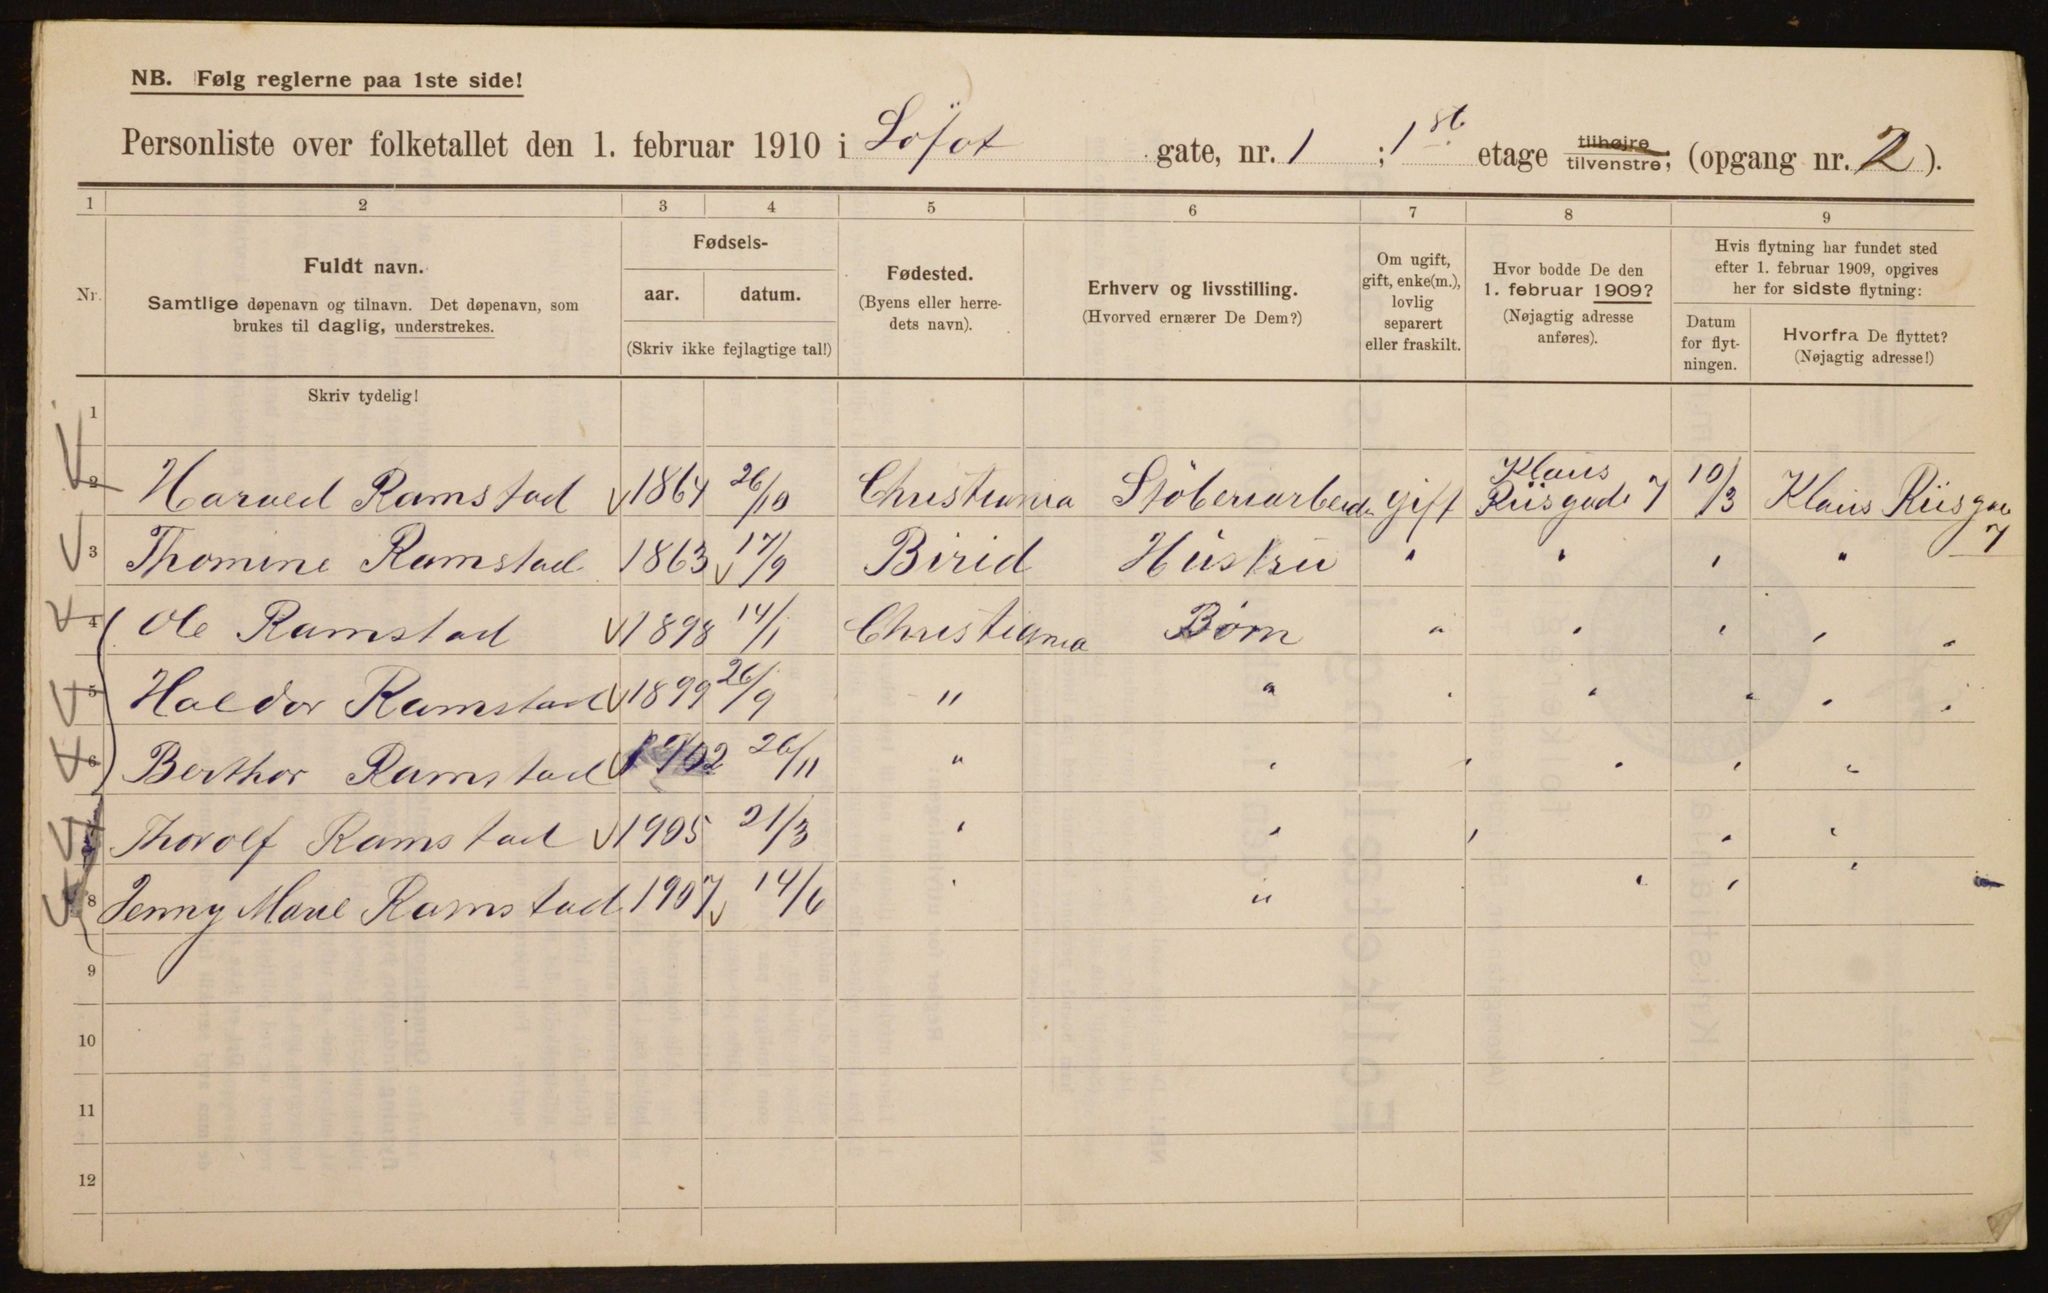 NB. Følg reglerne paa 1ste side!
Personliste over folketallet den 1. februar 1910 i Lofot gate, nr. 1 ; 1st etage tilhøjre tilvenstre, (opgang nr. 2 ).
1 2 3 4 5 6 7 8 9
Nr.
Fuldt navn.
Samtlige døpenavn og tilnavn. Det døpenavn, som
brukes til daglig, understrekes.
Fødsels-
aar. datum.
(Skriv ikke fejlagtige tal!)
Fødested.
(Byens eller herre-
dets navn).
Erhverv og livsstilling.
(Hvorved ernærer De Dem?)
Om ugift,
gift, enke(m.),
lovlig
separert
eller fraskilt.
Hvor bodde De den
1. februar 1909?
(Nøjagtig adresse
anføres).
Hvis flytning har fundet sted
efter 1. februar 1909, opgives
her for sidste flytning:
Datum
for flyt-
ningen.
Hvorfra De flyttet?
(Nøjagtig adresse!)
Skriv tydelig!
1
2 Harald Ramstad 1864 26/10 Christiania Støberiarbeider Gift Klaus Riisgade 7 10/3 Klaus Riisgae 7
3 Thomine Ramstad 1863 17/9 Birid Hüstru " " " "
4 Ole Ramstad 1898 14/1 Christiania Børn " " " " "
5 Haldor Ramstad 1899 26/9 " " " " " " "
6 Berthor Ramstad 1902 26/11 " " " " " "
Thorolf Ramstad 1905 21/3 " " " " "
8 Jenny Marie Ramstad 1907 14/6 " " " " "
9
10
11
12